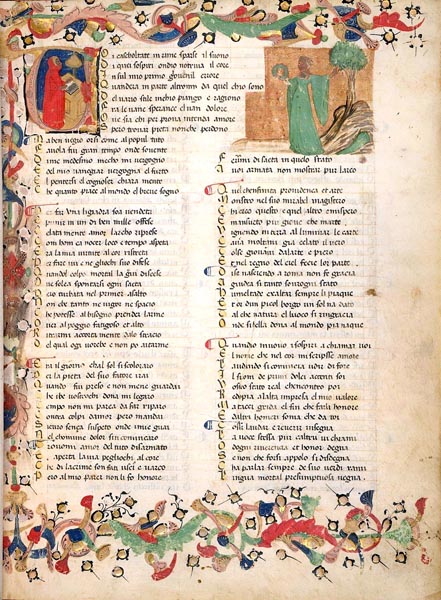 Voi cascholtate in rime sparse il suono
Di quei sospiri ondio nutriva il core
In sul mio primo giovenil errore
Quandera in parte altruom da quel chio sono
Del vario stile inchio piango et ragiono
Fra le vane speranze el van dolore
Ove sia chi per prova intenda amore
Spero trovar pieta nonche perdono
Ma ben vegio orsi come al popul tuto
Favola fui gran tempo onde sovente
Di me medesmo mecho mi vergogno
Et del mio vanegiar vergogna el fructo
El pentersi el cognoscer chiara mente
Che quanto piace al mondo el breve sogno
Per far una ligiadra soa vendeta
Et punir in un di ben mille offese
Celata mente amor larcho riprese
Come hom ca nocer loco e tempo aspeta
Era la mia virtute al cor ristrecta
Per far ivi e ne gliochi sue difese
Quando el colpo mortal la giu discese
Ove solea spontarsi ogni saeta
Pero turbata nel primer assalto
Non ebe tanto ne vigor ne spacio
Che potesse al bisogno prender larme
Over al poggio faticoso et alto
Ritrarmi acorta mente dalo stracio
Del qual ogi vorebe e non po aitarme
Era il giorno chal sol si scoloraro
Per la pieta del suo fatore i rai
Quando fui preso e non mene guardai
Che be vostrochi dona mi legaro
Tempo non mi parea da far riparo
Contra colpi damor pero mandai
Securo senza suspeto onde i mie guai
Nel chomune dolor si incominciaro
Trovomi amor del tuto disarmato
Et aperta la via pegliochi al core
Che di lacrime son fati uscio e varco
Pero al mio parer non li fo honore
Ferirmi di saeta in quelo stato
A voi armata non mostrar pur larco
Quel chenfinita providenca et arte
Mostro nel suo mirabel magistero
Che creo questo e quel altro emispero
E mansueto piu giove che marte
Vegnendo in terra ad aluminar le carte
Cavia molti anni gia celato il vero
Tolse giovani dalarte e piero
Et nel regno del ciel fece lor parte
Di se nascendo a roma non fe gracia
A giudea si tanto sovrogni stato
Humeltade exaltar sempre li piaque
Et or dun picol borgo un sol na dato
Tal che natura el luoco si ringracia
Onde si bella dona al mondo naque
Quando io muovo i sospiri a chiamar voi
El nome che nel cor mi scripse amore
Laudando si comincia udir di fore
Il suon de primi dolci accenti soi
Vostro stato real chencontro poi
Radopia alalta impresa el mio valore
Ma tacer grida el fin che farli honore
E daltri homeri soma che da toi
Cossi laudar e reverir insegna
La voce stessa pur caltri vi chiami
O dogni riverenza et honor degna
Se non che forsi appolo si disdegna
Cha parlar sempre de suoi verdi rami
Lingua mortal presumptuosa vegna